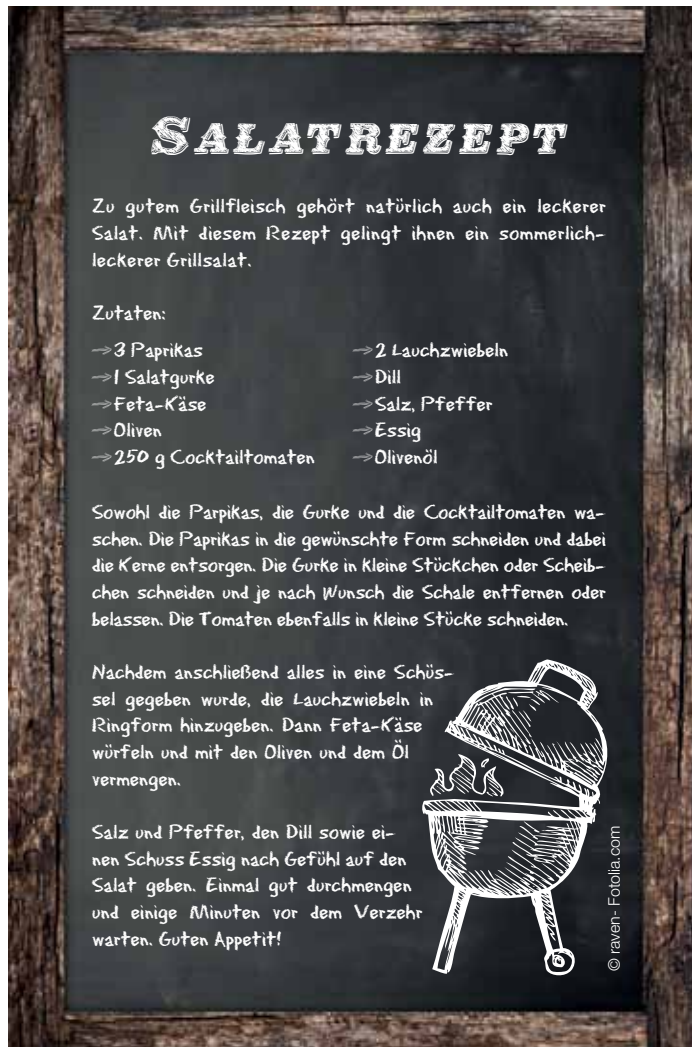 SALATREZEPT
Zu gutem Grillfleisch gehört natürlich auch ein leckerer
Salat. Mit diesem Rezept gelingt ihnen ein sommerlich-
leckerer Grillsalat.
Zutaten:
⇒3 Paprikas
⇒1 Salatgurke
⇒Feta-Käse
⇒Oliven
⇒250 g Cocktailtomaten
⇒2 Lauchzwiebeln
⇒Dill
⇒Salz, Pfeffer
⇒Essig
⇒Olivenöl
Sowohl die Parpikas, die Gurke und die Cocktailtomaten wa-
schen. Die Paprikas in die gewünschte Form schneiden und dabei
die Kerne entsorgen. Die Gurke in kleine Stückchen oder Scheib-
chen schneiden und je nach Wunsch die Schale entfernen oder
belassen. Die Tomaten ebenfalls in kleine Stücke schneiden.
Nachdem anschließend alles in eine Schüs-
sel gegeben wurde, die Lauchzwiebeln in
Ringform hinzugeben. Dann Feta-Käse
würfeln und mit den Oliven und dem Öl
vermengen.
Salz und Pfeffer, den Dill sowie ei-
nen Schuss Essig nach Gefühl auf den
Salat geben. Einmal gut durchmengen
und einige Minuten vor dem Verzehr
warten. Guten Appetit!
© raven- Fotolia.com